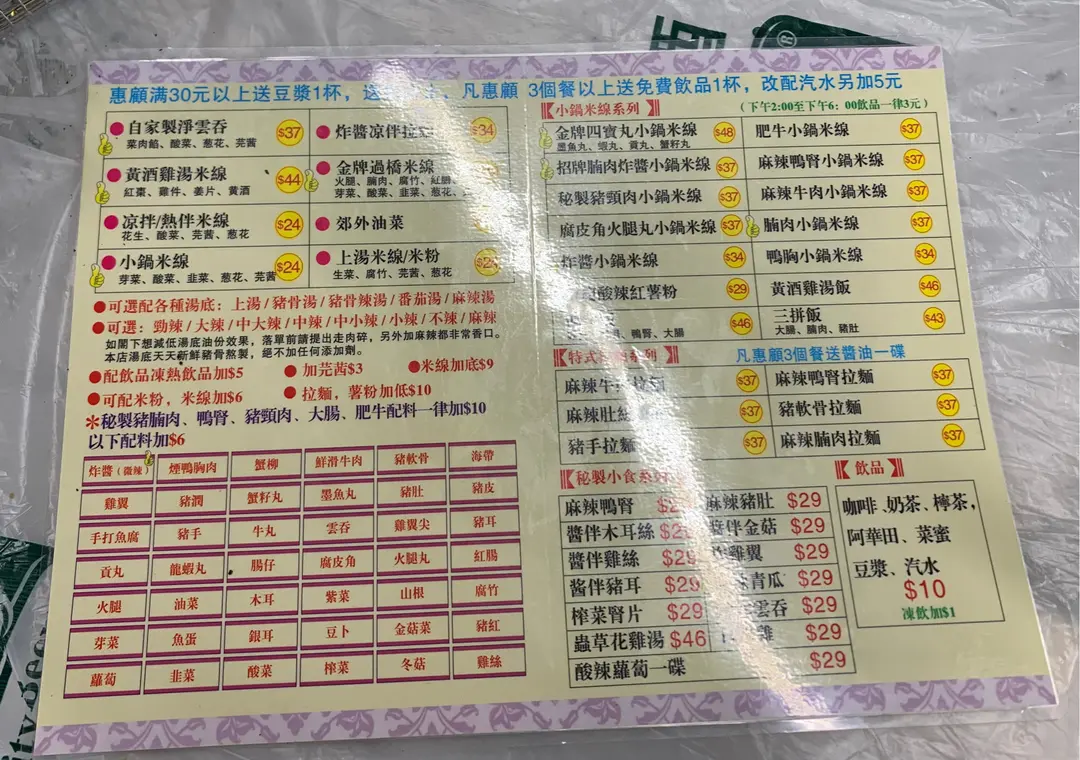 惠顧满30元以上送豆漿1杯，送
凡惠顧 3個餐以上送免費飲品1杯，改配汽水另加5元
自家製淨雲吞 $37
菜肉餡、酸菜、葱花、芫茜
黃酒雞湯米線 $44
紅棗、雞件、姜片、黄酒
凉拌/熱伴米線 $24
花生、酸菜、芫茜、葱花
小鍋米線 $24
芽菜、酸菜、韭菜、葱花、芫茜
炸醬凉伴拉 $34
金牌過橋米線
火腿、腩肉、腐竹、紅腸
芽菜、酸菜、韭菜、葱花、
郊外油菜
上湯米線/米粉
生菜、腐竹、芫茜、葱花
●可選配各種湯底：上湯/豬骨湯/豬骨辣湯/番茄湯/麻辣湯
●可選：勁辣/大辣/中大辣/中辣/中小辣/小辣/不辣/麻辣
如閣下想減低湯底油份效果，落單前請提出走肉碎，另外加麻辣都非常香口。
本店湯底天天新鮮豬骨熬製，絕不加任何添加劑。
●配飲品凍熱飲品加$5 ●加芫茜$3 ●米線加底$9
●可配米粉，米線加$6 ●拉麵，薯粉加低$10
*秘製豬腩肉、鴨腎、豬頸肉、大腸、肥牛配料一律加$10
以下配料加$6
炸醬(微辣) 煙鴨胸肉 蟹柳 鮮滑牛肉 豬軟骨 海帶
雞翼 豬潤 蟹籽丸 墨魚丸 豬肚 豬皮
手打魚腐 豬手 牛丸 雲吞 雞翼尖 豬耳
貢丸 龍蝦丸 腸仔 腐皮角 火腿丸 紅腸
火腿 油菜 木耳 紫菜 山根 腐竹
芽菜 魚蛋 銀耳 豆卜 金菇菜 豬紅
蘿蔔 韭菜 酸菜 榨菜 冬菇 雞絲
小鍋米線系列
(下午2:00至下午6：00飲品一律3元)
金牌四寶丸小鍋米線 $48
墨魚丸、蝦丸、貢丸、蟹籽丸
招牌腩肉炸醬小鍋米線 $37
秘製豬頸肉小鍋米線 $37
腐皮角火腿丸小鍋米線 $37
炸醬小鍋米線 $34
酸辣紅薯粉 $29
$46
、鴨腎、大腸
肥牛小鍋米線 $37
麻辣鴨腎小鍋米線 $37
麻辣牛肉小鍋米線 $37
腩肉小鍋米線 $37
鴨胸小鍋米線 $34
黃酒雞湯飯 $46
三拼飯 $43
大腸、腩肉、豬肚
特式 系列
凡惠顧3個餐送醬油一碟
麻辣牛 拉麵 $37
麻辣肚絲 $37
豬手拉麵 $37
麻辣鴨腎拉麵 $37
豬軟骨拉麵 $37
麻辣腩肉拉麵 $37
秘製小食系列
麻辣鴨腎
醬伴木耳絲
醬伴雞絲 $29
酱伴豬耳 $29
榨菜腎片 $29
蟲草花雞湯 $46
酸辣蘿蔔一碟 $29
麻辣豬肚 $29
醬伴金菇 $29
雞翼 $29
青瓜 $29
雲吞 $29
雞 $29
飲品
咖啡、奶茶、檸茶，
阿華田、菜蜜
豆漿、汽水
$10
凍飲加$1